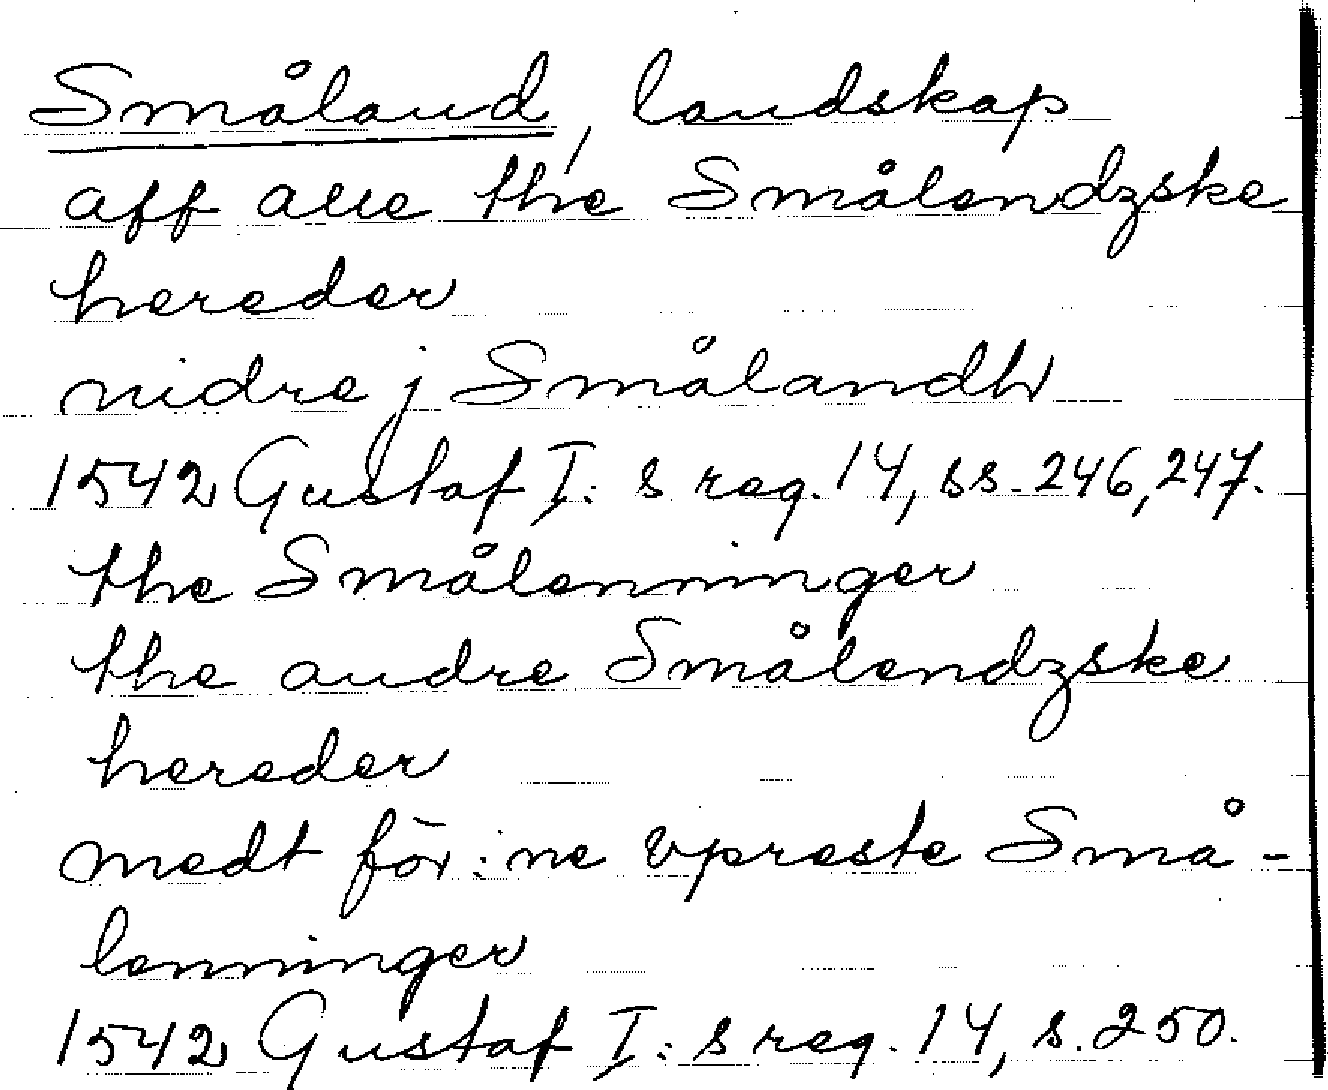 Småland, landskap
aff alle the Smålendzske
hereder
nidre j Smålandh
1542 Gustaf I: s reg. 14, ss. 246, 247.
the Smålenninger
the andre Smålendzske
hereder
medt för:ne vpreste Små-
lenninger
1542 Gustaf I: s reg. 14, s. 250.